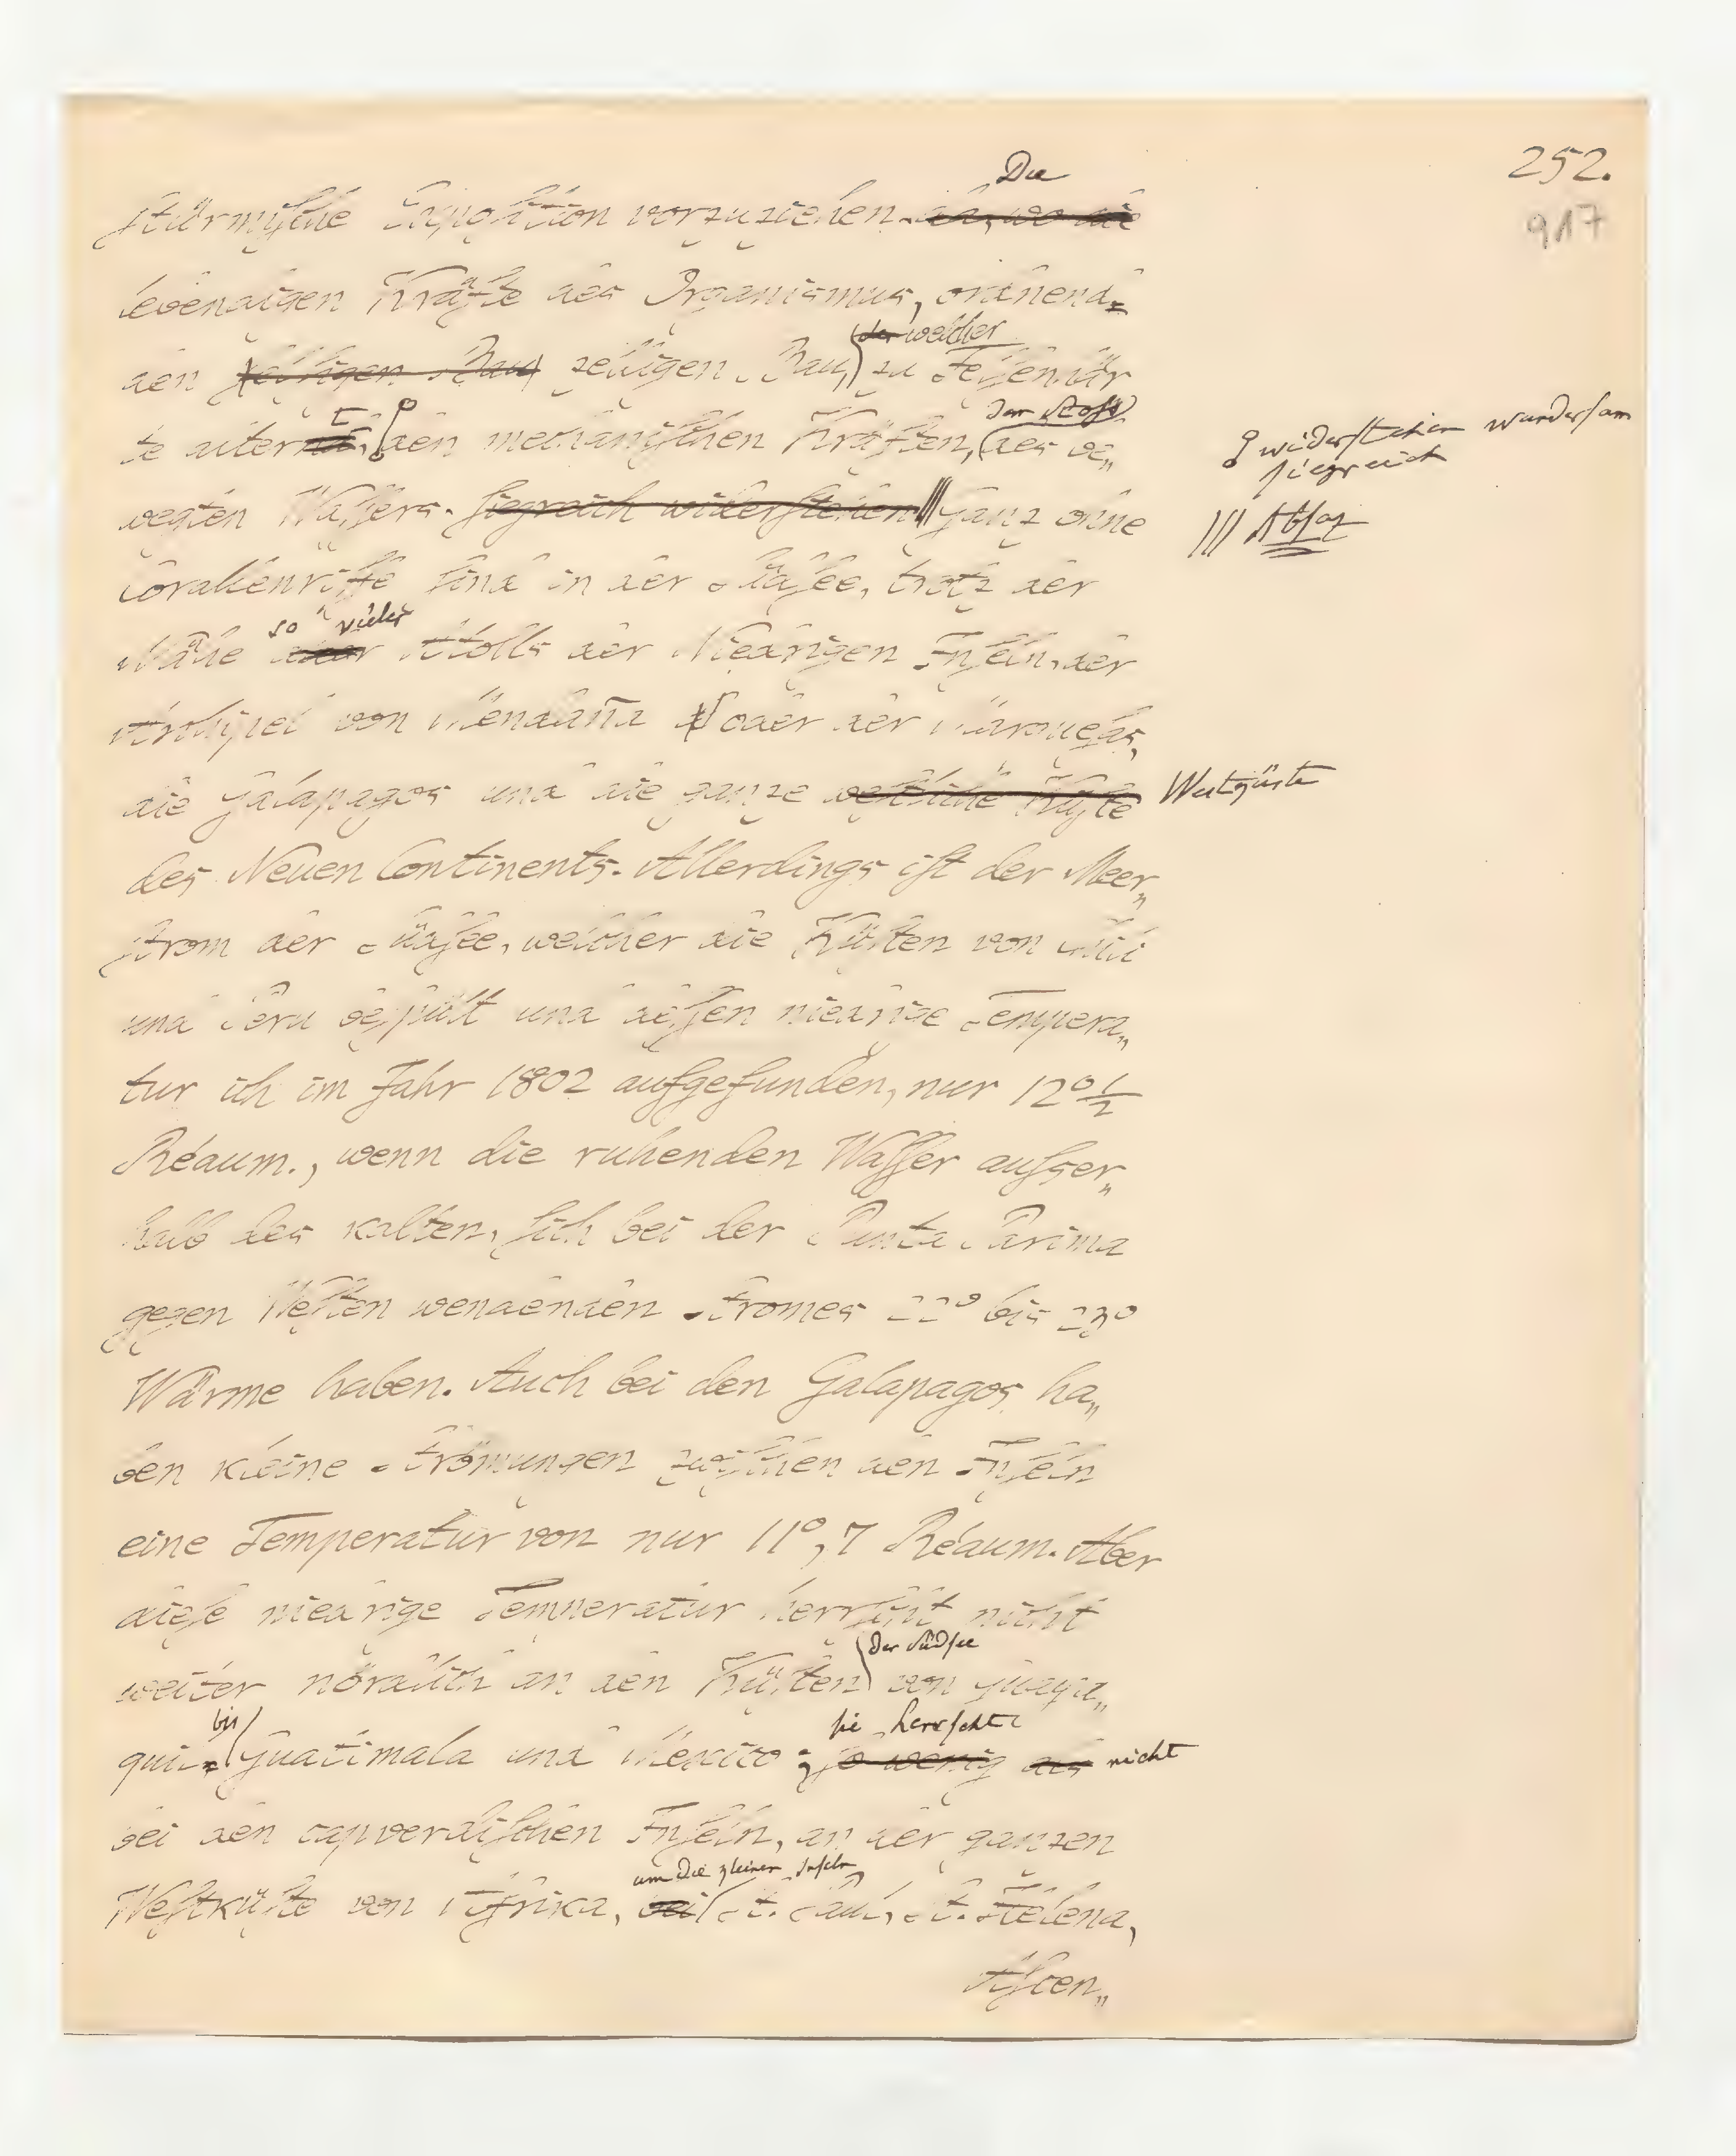 252.
917
Die
stürmische Exposition vorzuziehen. da, wo die
lebendigen Kräfte des Organismus, ordnend
der welcher
den zelligen Bau zelligen Bau, zu Felsenhär„
t der Stoß
te altern, den mechanischen Kräften, des be„
widerstehen wundersam
siegreich
wegten Wassers. siegreich widerstehen Ganz ohne
Absaz
Corallenriffe sind in der Südsee, trotz der
so vieler
Nähe der Atolls der Niedrigen Inseln, der
Archipel von Mendaña oder der Marquesas,
die Galapagos und die ganze westliche Küste Westküste
des Neuen Continents. Allerdings ist der Meer„
strom der Südsee, welcher die Küsten von Chili
und Peru bespült und dessen niedrige Tempera„
tur ich im Jahr 1802 aufgefunden, nur 12°½
Réaum., wenn die ruhenden Wasser ausser„
halb des kalten, sich bei der Punta Parima
gegen Westen wendenden Stromes 22° bis 23°
Wärme haben. Auch bei den Galapagos ha„
ben kleine Strömungen zwischen den Inseln
eine Temperatur von nur 11°,7 Réaum. Aber
diese niedrige Temperatur herrscht nicht
der Südsee
weiter nördlich an den Küsten von Guaya„
bis sie herrscht
quil Guatimala und Mexico; so wenig als nicht
bei den capverdischen Inseln, an der ganzen
um die kleinen Inseln
Westküste von Afrika, bei St. Paul, St. Helena,
Ascen„